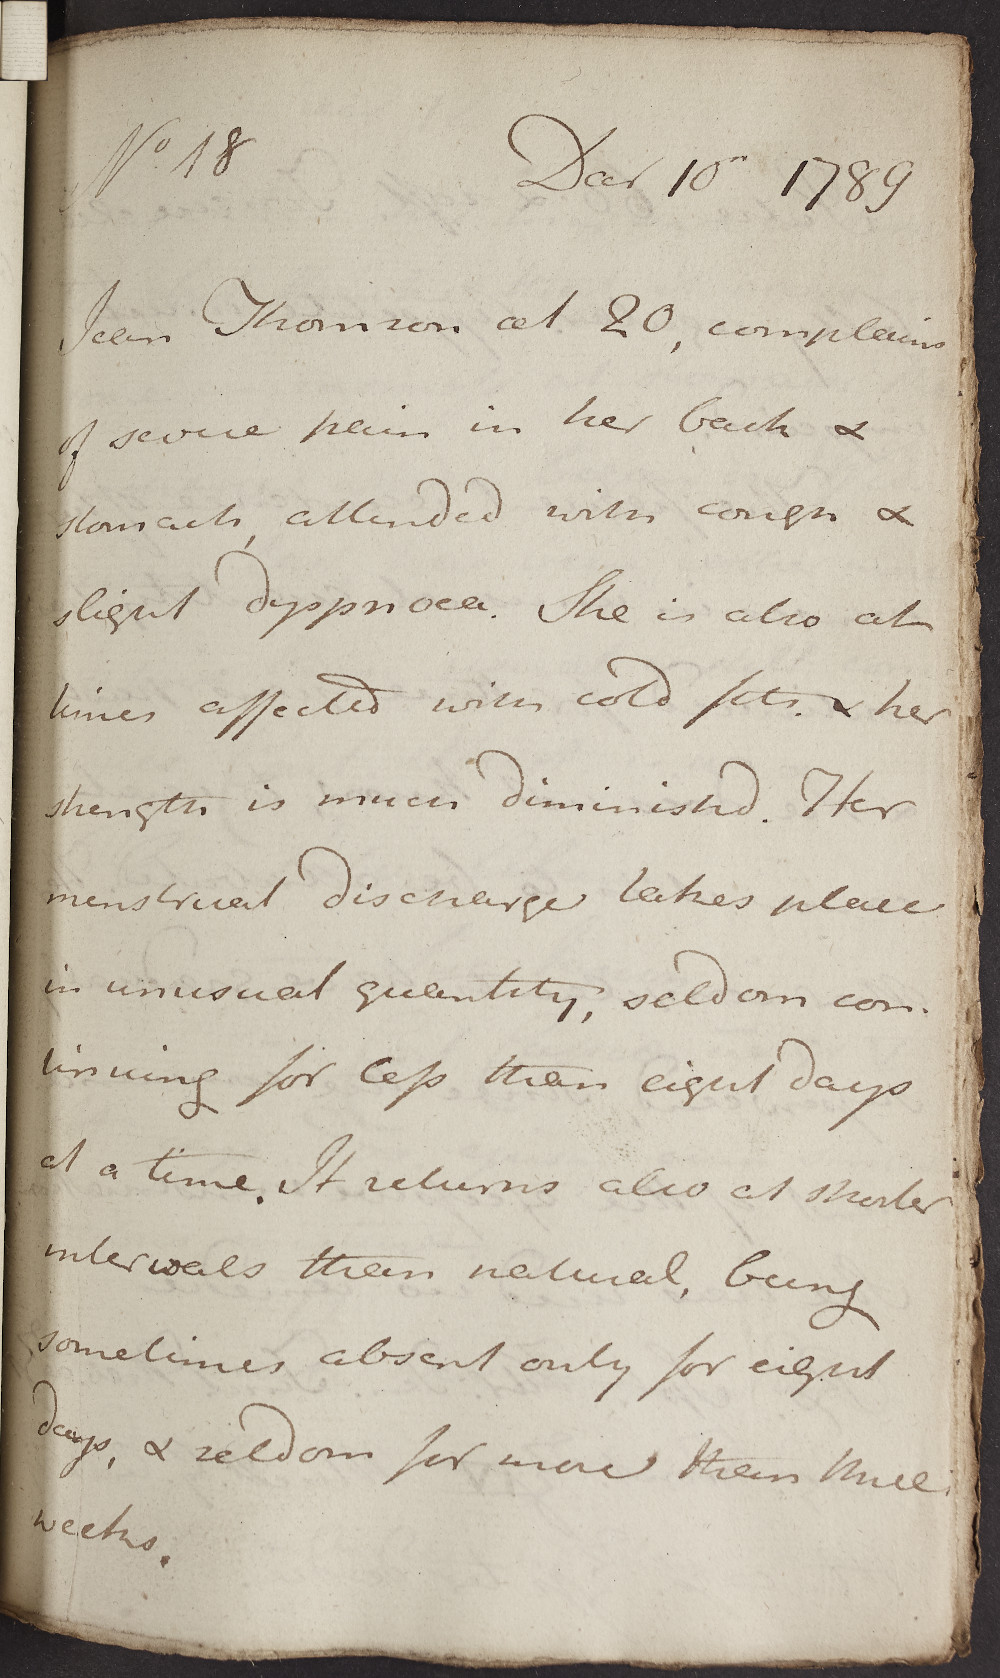 No 18 Decr 10th 1789
Jean Thomson aet 20, complains
of severe pain in her back &
stomach, attended with cough &
slight dyspnoea. She is also at
times affected with cold fits. & her
strength is much diminishd. Her
menstrual discharge takes place
in unusual quantity, seldom con-
tinuing for less than eight days
at a time. It returns also at shorter
intervals than natural, being
sometimes absent only for eight
days, & seldom for more than three
weeks.